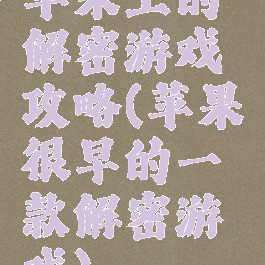 苹果上的
解密游戏
攻略(苹果
很早的一
款解密游
戏)